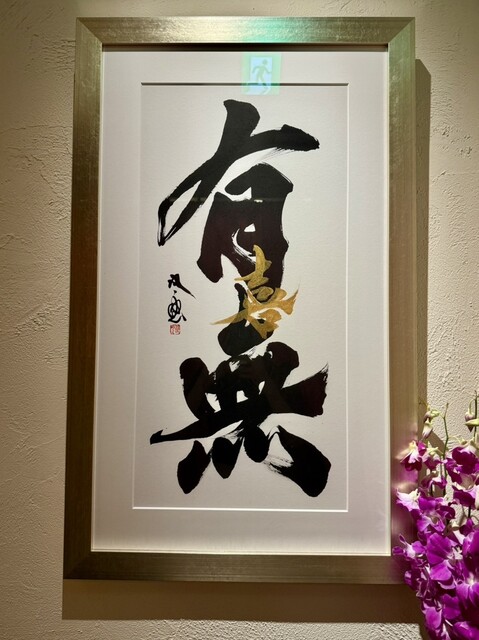 有
喜
無